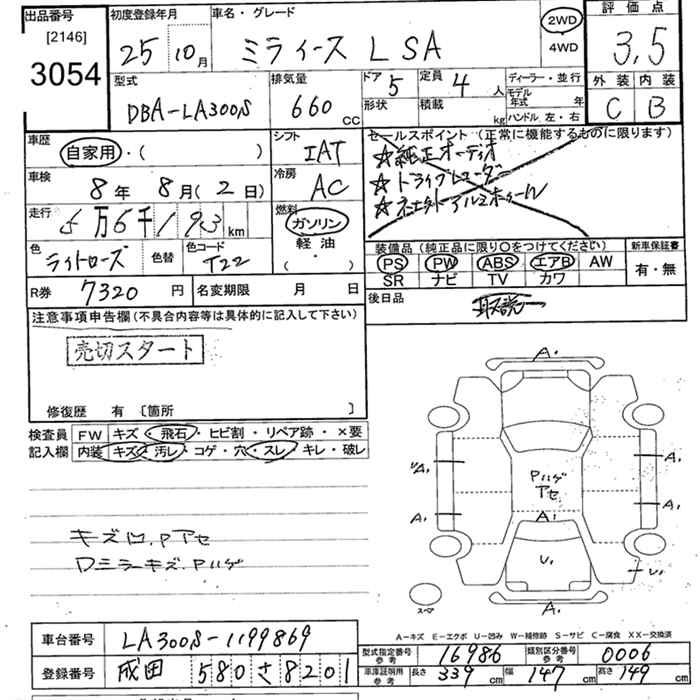 出品番号
[2146]
3054
初度登録年月
25 10月
車名・グレード
ミライース LSA
2WD
4WD
評価点
3.5
外装 内装
C B
型式
DBA-LA300S
排気量
660 cc
ドア 5
定員 4 人
形状
積載 kg
ディーラー・並行
モデル年式 年
ハンドル 左・右
車歴
自家用・( )
シフト
IAT
車検
8年 8月(2日)
冷房
AC
走行
5万6千193 km
燃料
ガソリン
軽油
( ・ )
色
ライトローズ
色替
色コード
T22
セールスポイント (正常に機能するものに限ります)
☆純正オーディオ
☆ドライブレコーダー
装備品 (純正品に限り○をつけてください)
新車保証書
PS PW ABS エアB AW
SR ナビ TV カワ
有・無
R券 7320 円
名変期限 月 日
後日品
取説
注意事項申告欄 (不具合内容等は具体的に記入して下さい)
売切スタート
修復歴 有 〔箇所 〕
検査員記入欄
FW キズ・飛石・ヒビ割・リペア跡・×要
内装 キズ・汚レ・コゲ・穴・スレ・キレ・破レ
キズ凹.Pアセ
Dミラーキズ.Pハゲ
A.
A.
A.
A.
A.
Pハゲ
アセ
A.
U.
U.
A.
スペア
A-キズ E-エクボ U-凹み W-補修跡 S-サビ C-腐食 XX-交換済
車台番号
LA300S-1199869
登録番号
成田 580 さ 8201
型式指定番号 参考 16986
類別区分番号 参考 0006
車庫証明用 参考
長さ 339 cm 幅 147 cm 高さ 149 cm